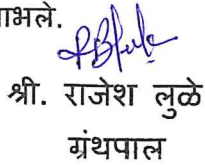 ाभले.
श्री. राजेश लुळे
ग्रंथपाल